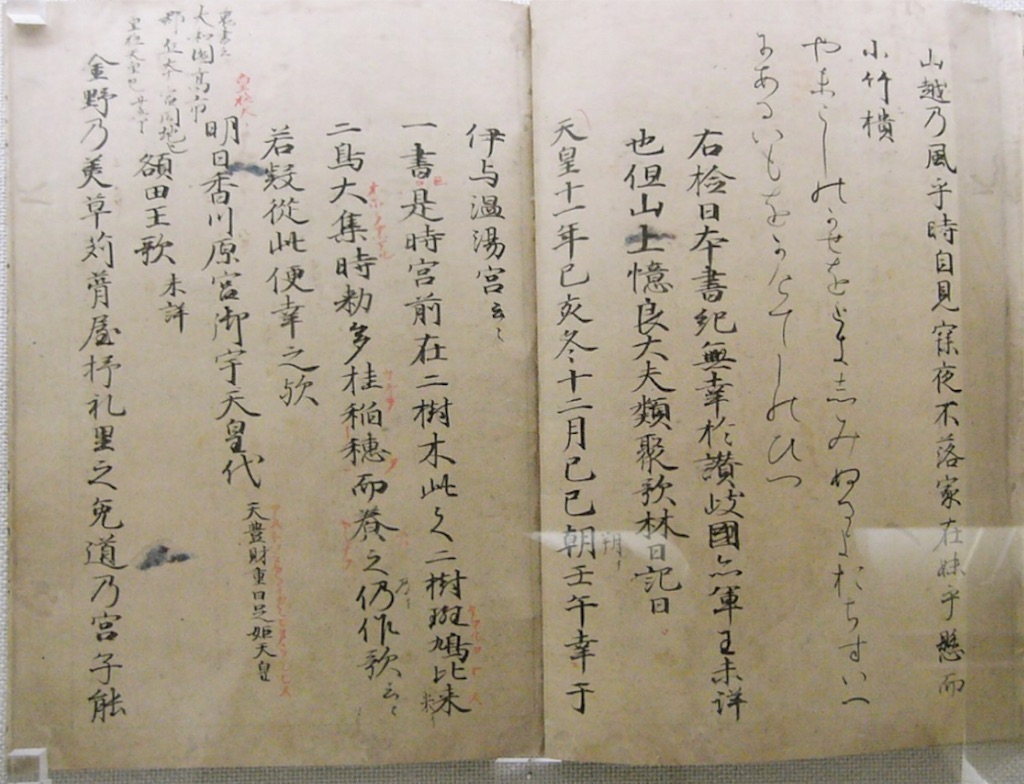 山越乃風乎時自見寐夜不落家在妹乎懸而
小竹樻
やまこしのかせをときしみぬるよおちすいへ
にあるいもをかけてしのひつ
右捡日本書紀無幸於讃岐國亦軍王未詳
也但山上憶良大夫類聚歌林曰記曰
天皇十一年己亥冬十二月己巳朝壬午幸于
朔
伊与温湯宮云々
一書是時宮前在二樹木此之二樹斑鳩比米
二鳥大集時勅多挂稲穂而養之仍作歌云々
若疑従此便幸之歟
明日香川原宮御宇天皇代 天豊財重日足姫天皇
裏書云
大和國高市
郡丘本宮同地也
額田王歌 未詳
金野乃美草苅葺屋杼礼里之兎道乃宮子能